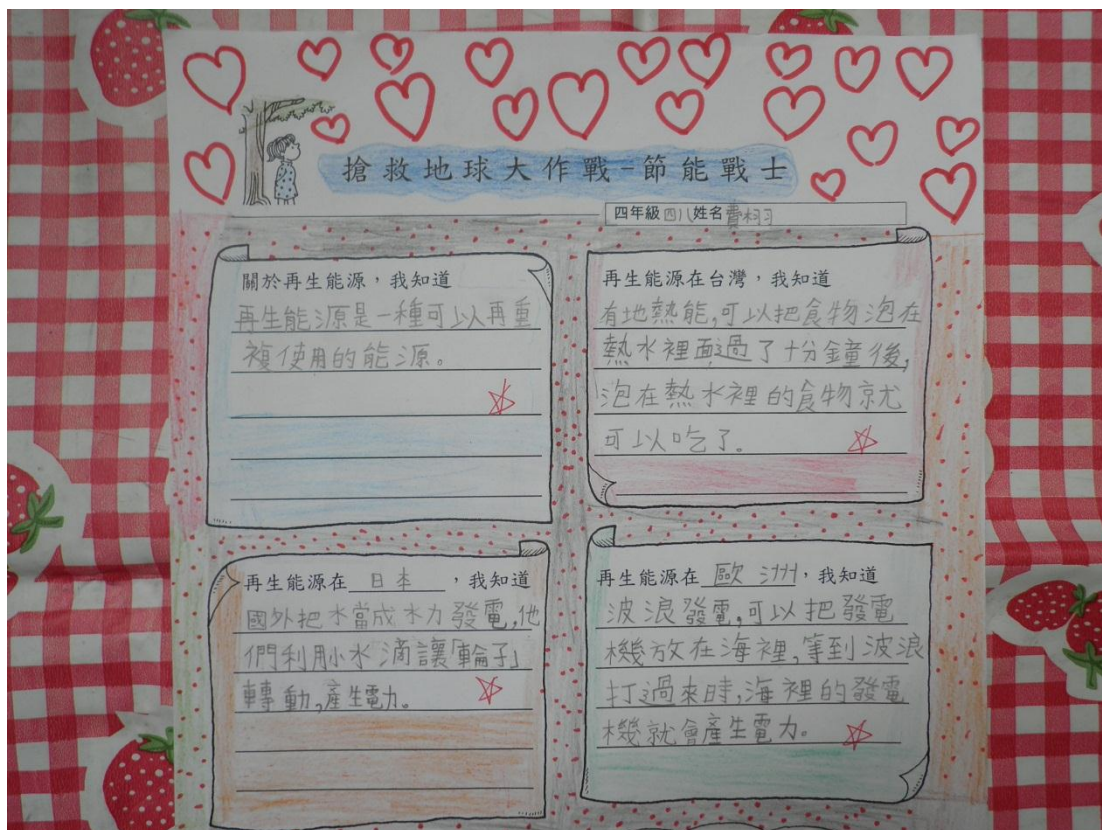 搶救地球大作戰-節能戰士
四年級四八姓名費栩羽
關於再生能源，我知道
再生能源是一種可以再重
複使用的能源。
再生能源在台灣，我知道
有地熱能,可以把食物泡在
熱水裡面過了十分鐘後,
泡在熱水裡的食物就
可以吃了。
再生能源在日本，我知道
國外把水當成水力發電,他
們利用小水滴讓「輪子」
轉動,產生電力。
再生能源在歐洲，我知道
波浪發電,可以把發電
機放在海裡,等到波浪
打過來時,海裡的發電
機就會產生電力。